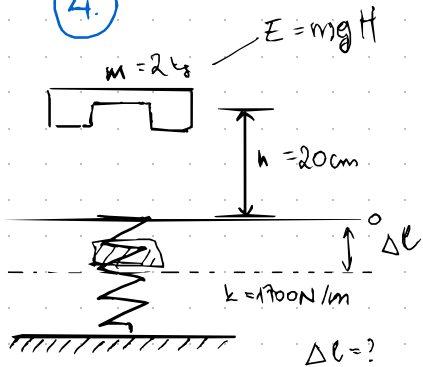 4.
E = mgH
m = 2kg
h = 20cm
0
Δl
k = 1700N/m
Δl = ?